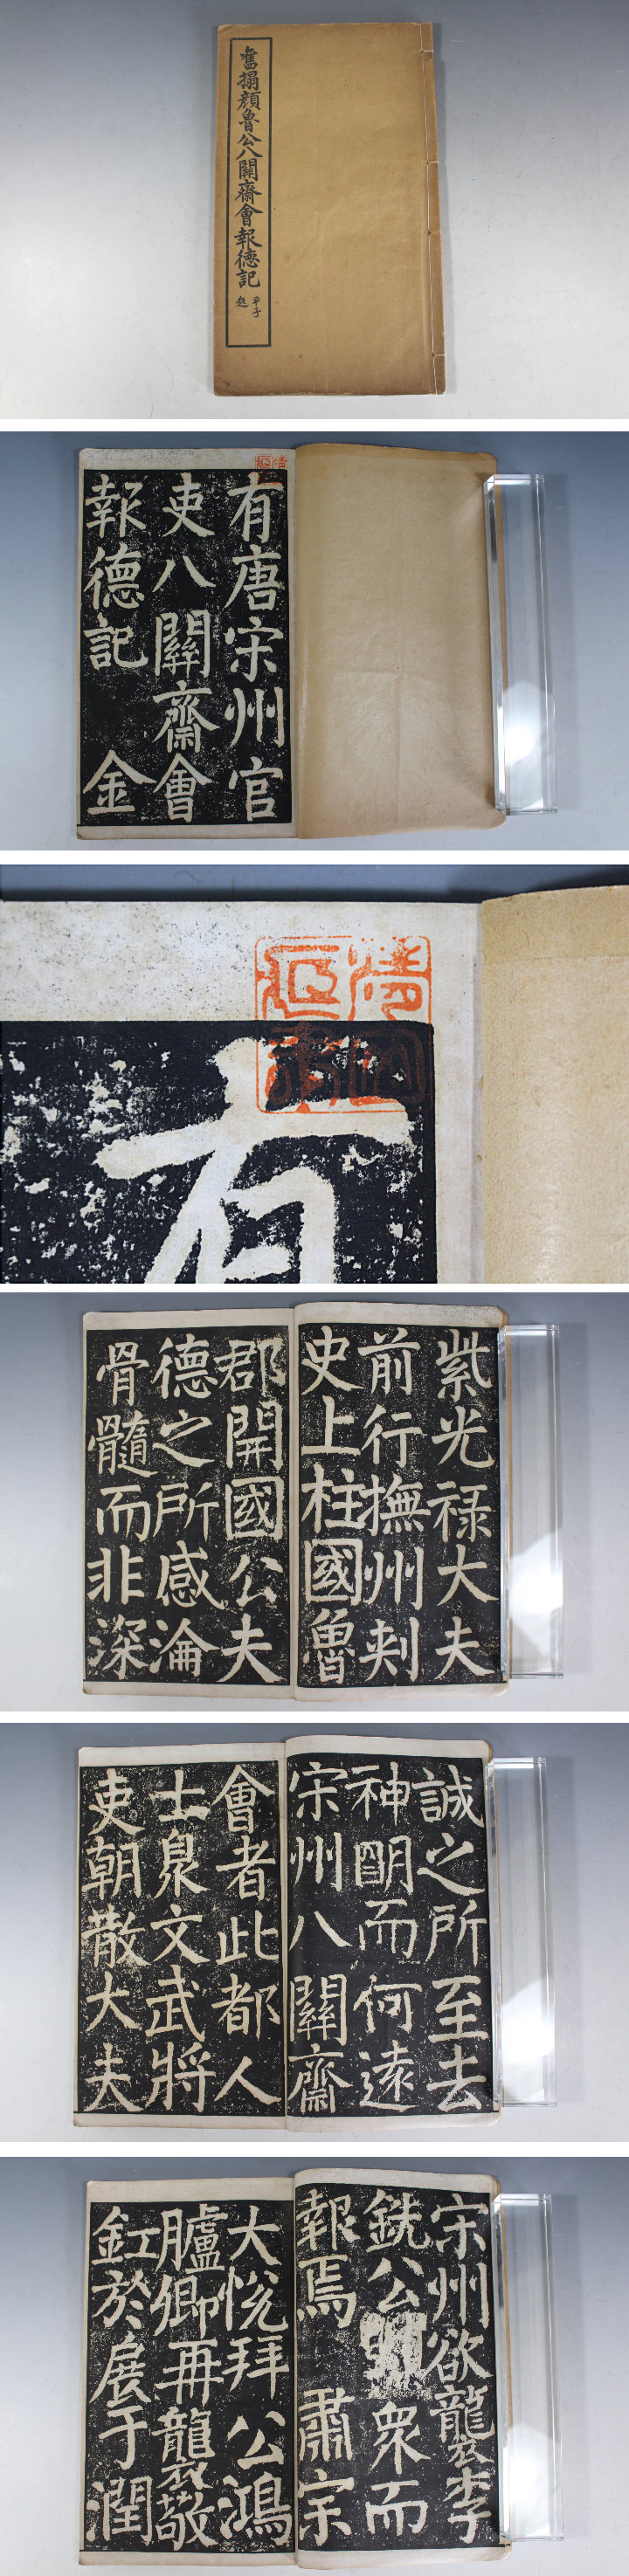 舊搨顏魯公八關齋會報德記
平子
題
有唐宋州官
吏八關齋會
報德記 金
有
紫光祿大夫
前行撫州刺
史上柱國魯
郡開國公夫
德之所感淪
骨髓而非深
誠之所至去
神明而何遠
宋州八關齋
會者此都人
士衆文武將
吏朝散大夫
宋州欲襲李
銑公 衆而
報焉 肅宗
大悅拜公鴻
臚卿再襲敬
釭於展于潤